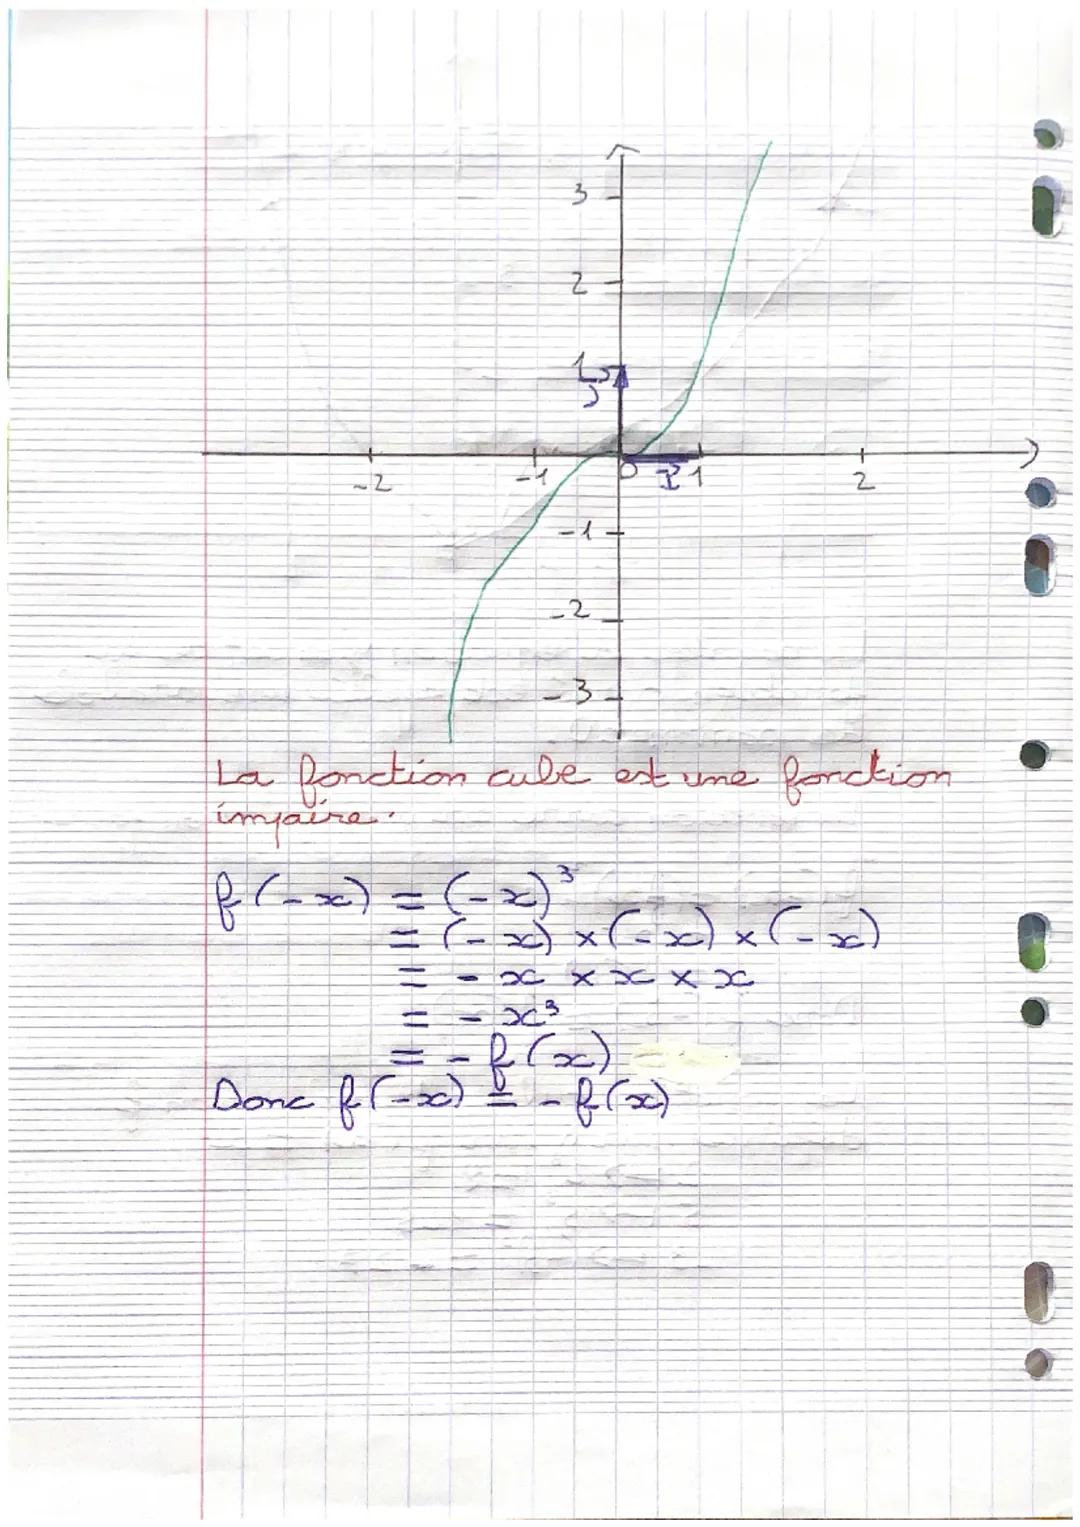 3
2
1
j
-2
-1
0
i
1
2
-1
-2
-3
La fonction cube est une fonction
impaire.
f(-x) = (-x)³
= (-x) × (-x) × (-x)
= - x × x × x
= - x³
= - f(x)
Donc f(-x) = - f(x)